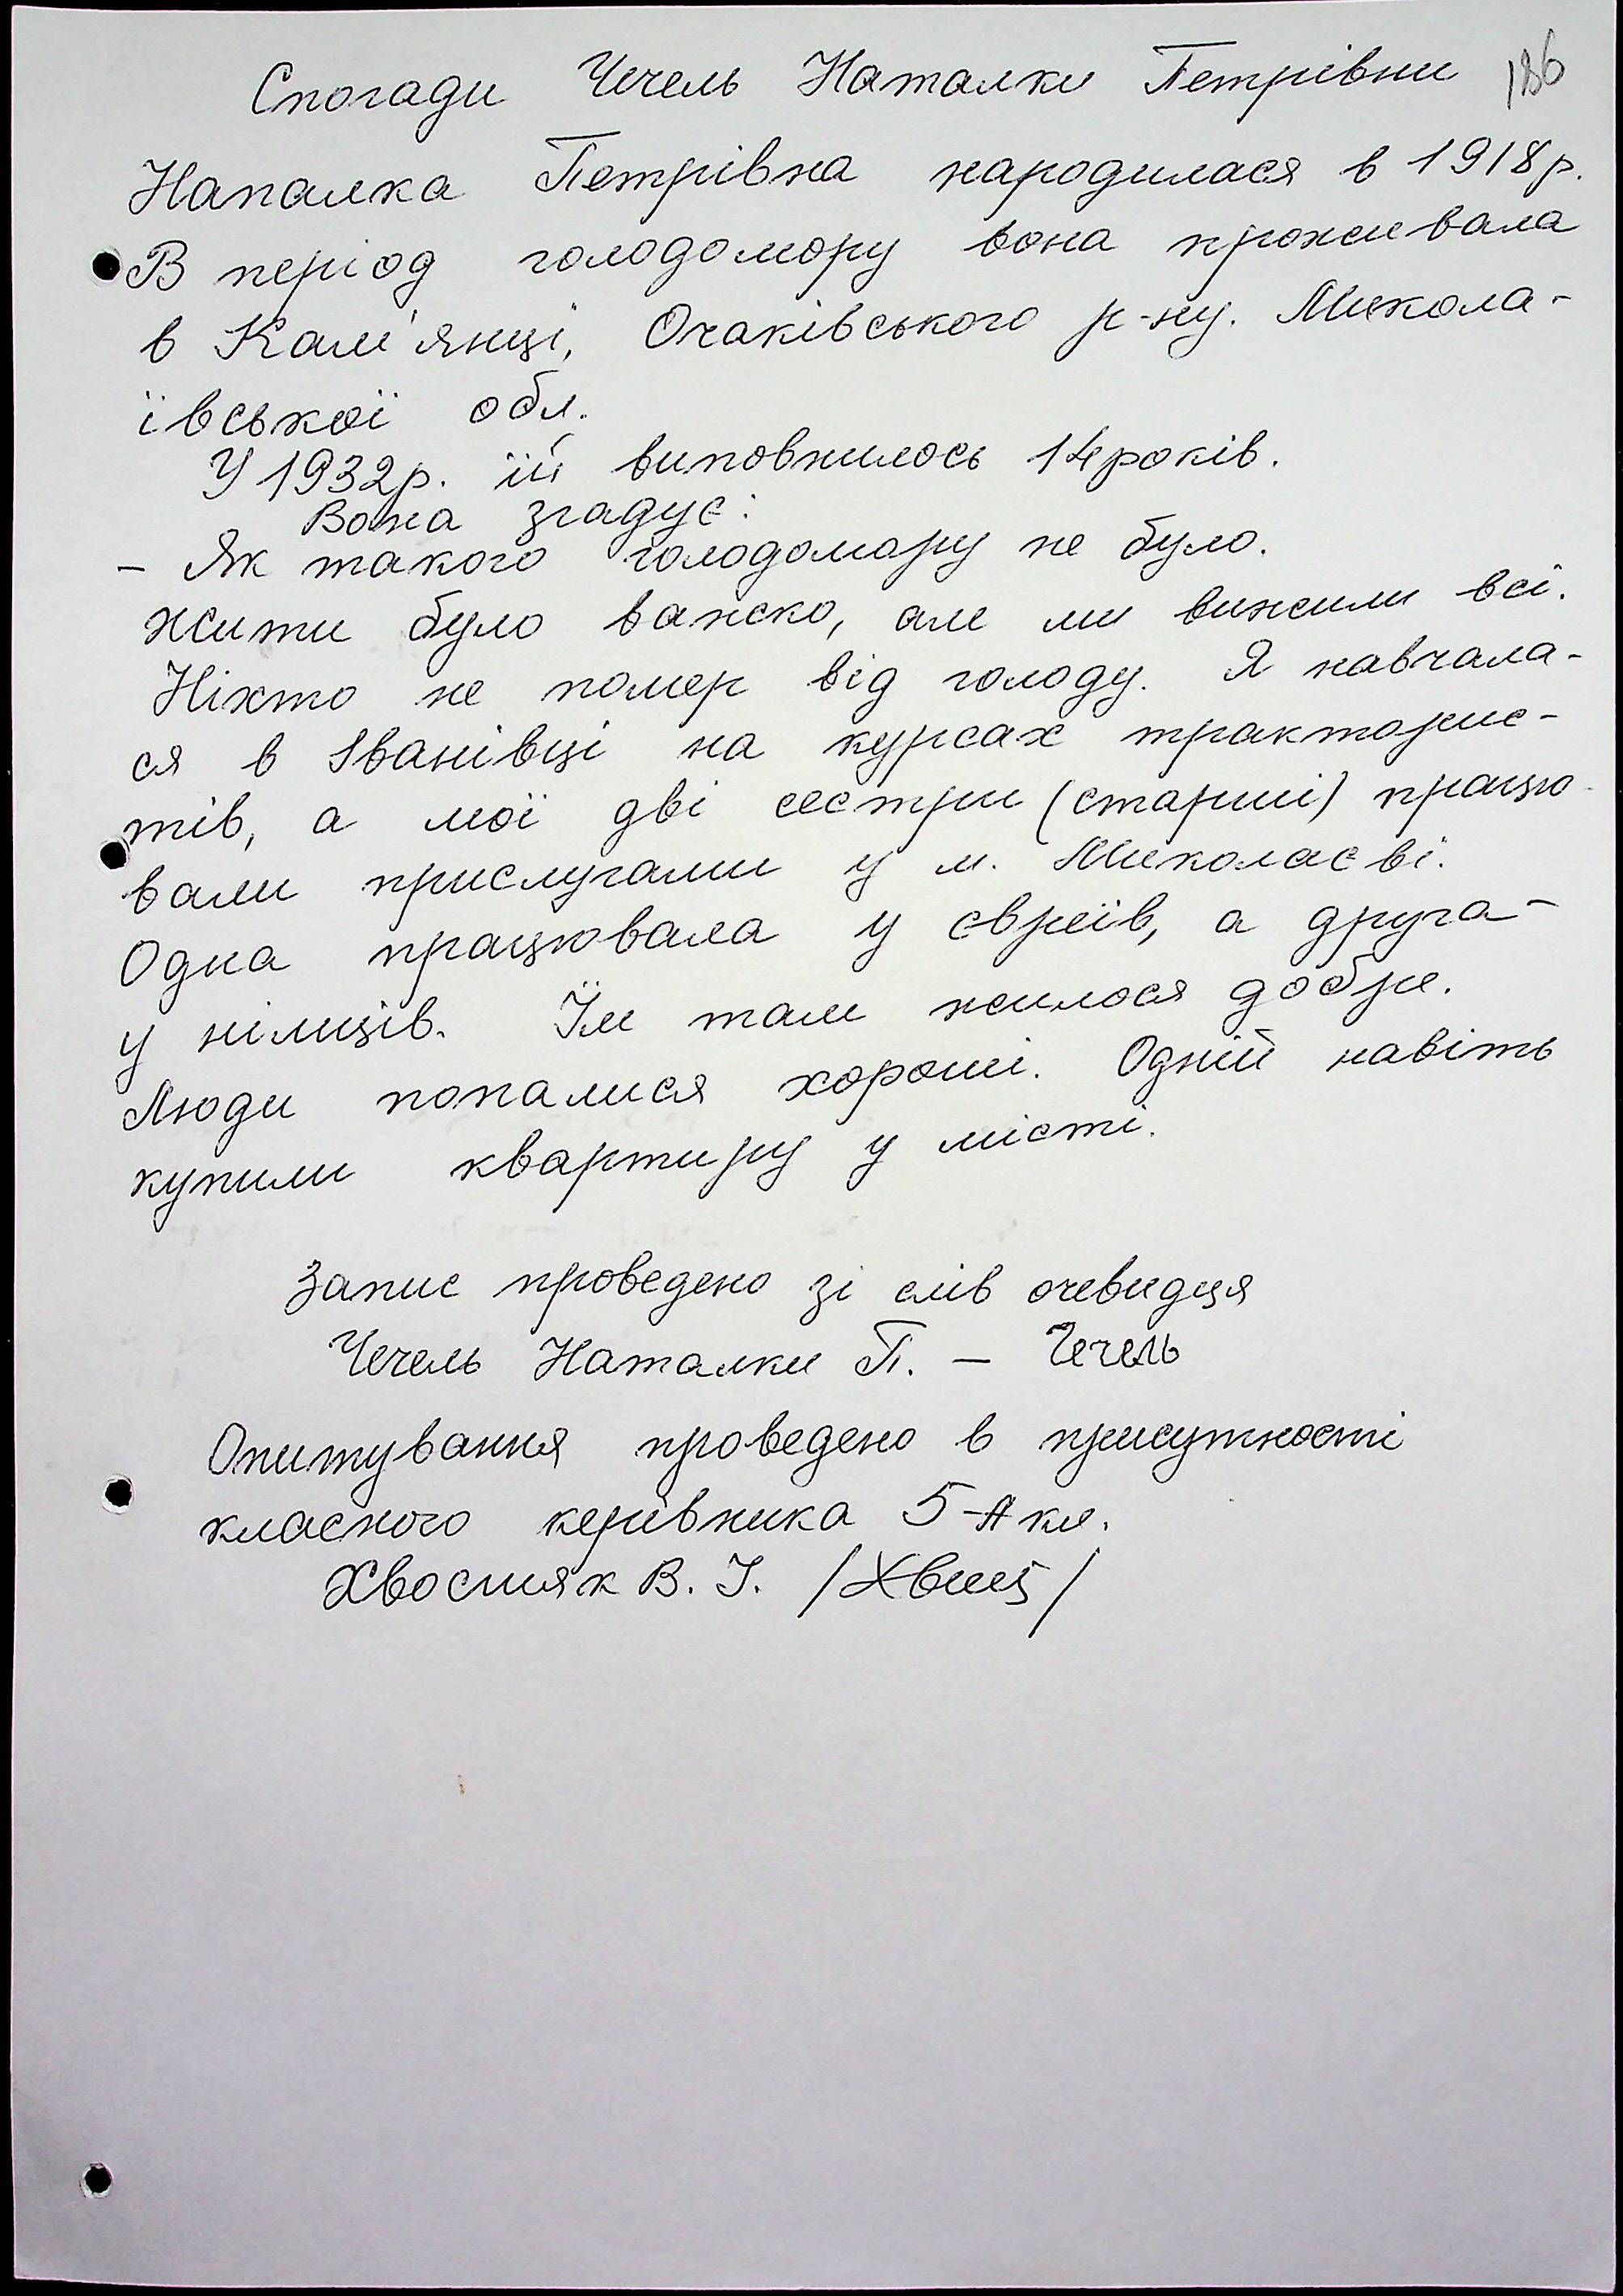 Спогади Чечель Наталки Петрівни 186
Наталка Петрівна народилася в 1918р.
В період голодомору вона проживала
в Кам'янці, Очаківського р-ну. Микола-
ївської обл.
У 1932р. їй виповнилось 14років.
Вона згадує:
- Як такого голодомору не було.
Жити було важко, але ми вижили всі.
Ніхто не помер від голоду. Я навчала-
ся в Іванівці на курсах тракторис-
тів, а мої дві сестри (старші) працю-
вали прислугами у м. Миколаєві.
Одна працювала у євреїв, а друга-
у німців. Їм там жилося добре.
Люди попалися хороші. Одній навіть
купили квартиру у місті.
Запис проведено зі слів очевидця
Чечель Наталки П. - Чечель
Опитування проведено в присутності
класного керівника 5-А кл.
Хвостяк В. І.